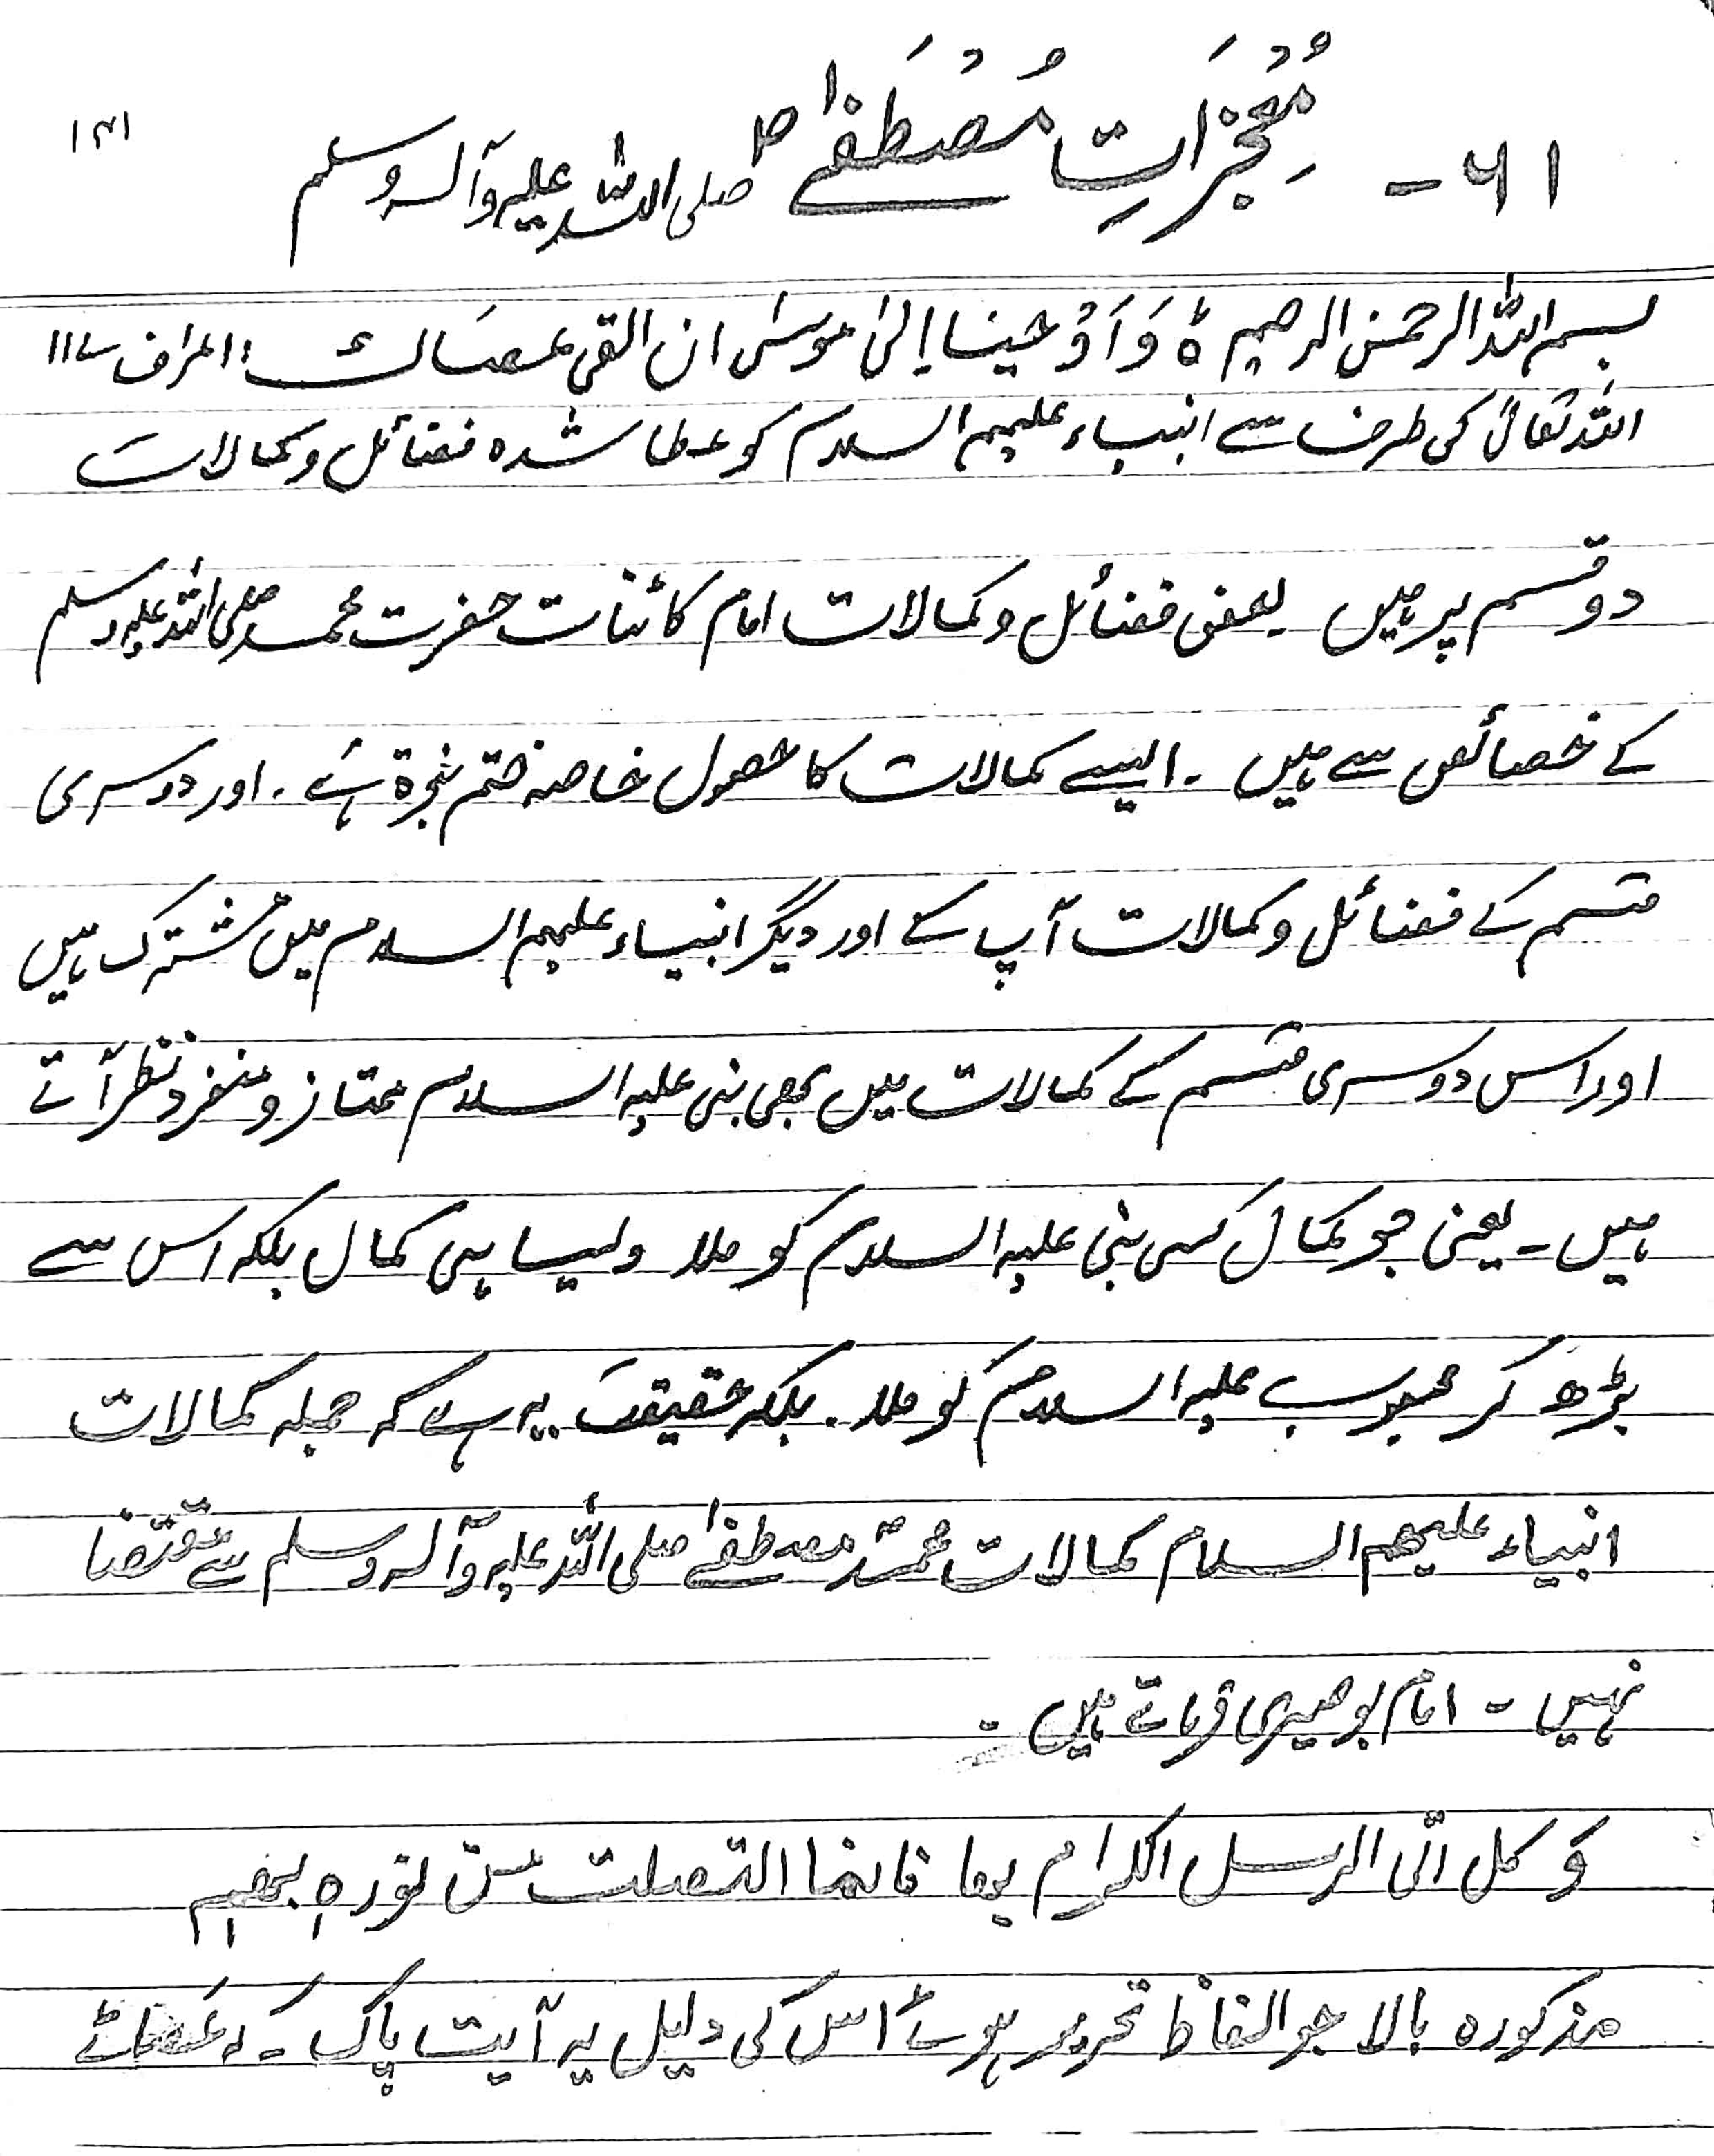 ۶۱ - مُعْجِزَاتِ مُصْطَفےٰ صلی اللہ علیہ وآلہ وسلم
۱۴۱
بسم اللہ الرحمٰن الرحیم ہ وَ اَوْحینَا اِلیٰ موسٰی ان القی عصَاک ؛ اعراف
اللہ تعالیٰ کی طرف سے انبیاء علیہم السلام کو عطا شدہ فضائل و کمالات
دو قسم پر ہیں ۔ بعض فضائل و کمالات امام کائنات حضرت محمد صلی اللہ علیہ وسلم
کے خصائص سے ہیں ۔ ایسے کمالات کا حصول خاصہ ختم نبوۃ ہے ۔ اور دوسری
قسم کے فضائل و کمالات آپ کے اور دیگر انبیاء علیہم السلام میں مشترک ہیں
اور اس دوسری قسم کے کمالات میں بھی نبی علیہ السلام ممتاز و منفرد نظر آتے
ہیں ۔ یعنی جو کمال کسی نبی علیہ السلام کو ملا ولیسا ہی کمال بلکہ اس سے
بڑھ کر محبوب علیہ السلام کو ملا ۔ بلکہ حقیقت یہ ہے کہ جملہ کمالات
انبیاء علیھم السلام کمالات محمد مصطفےٰ صلی اللہ علیہ وآلہ وسلم سے
نہیں ۔ امام بوصیری فرماتے ہیں ۔
وَ کل اتی الرسل الکرام بھا فانما اتصلت من نورہ بھم
مذکورہ بالا جو الفاظ تحریر ہوئے اس کی دلیل یہ آیت پاک ہَے